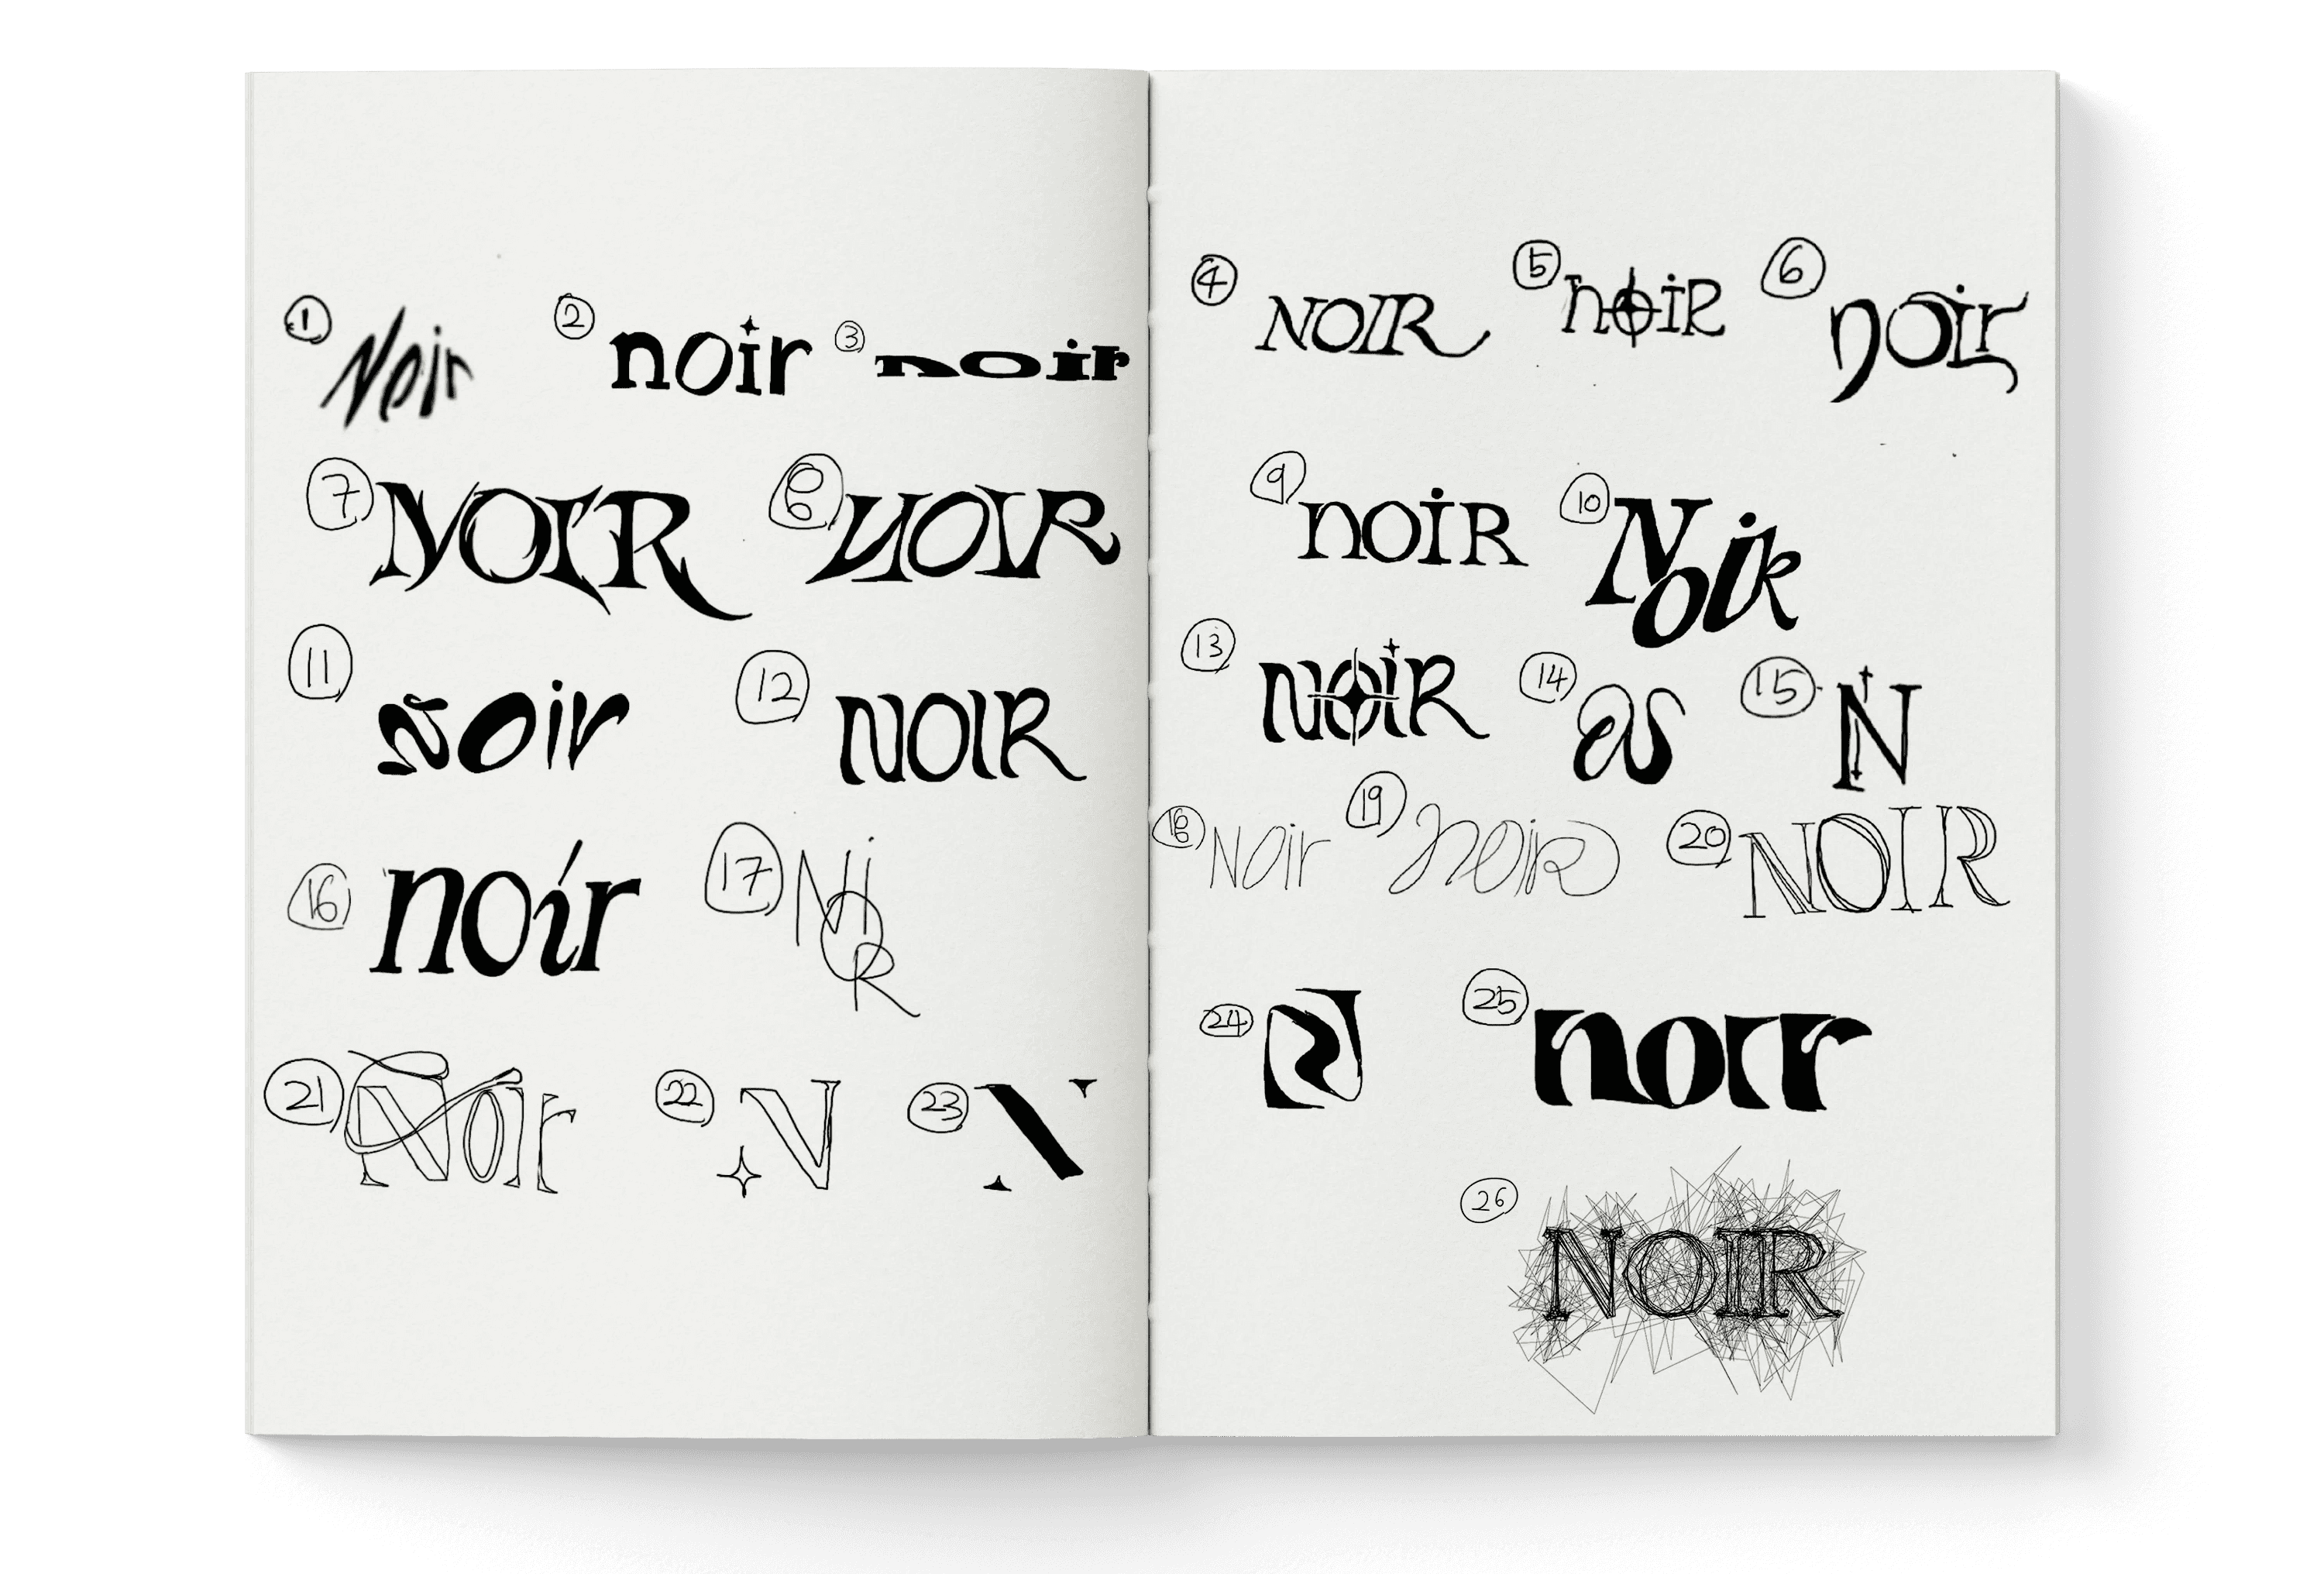 1 Noir
2 noir
3 noir
7 NOIR
8 NOIR
11 Noir
12 NOIR
16 noir
17 NiOR
21 Noir
22 N
23 N
4 NOIR
5 noiR
6 noir
9 noiR
10 NoiR
13 NOiR
15 N
18 Noir
19 noiR
20 NOIR
24 N
25 noir
26 NOIR